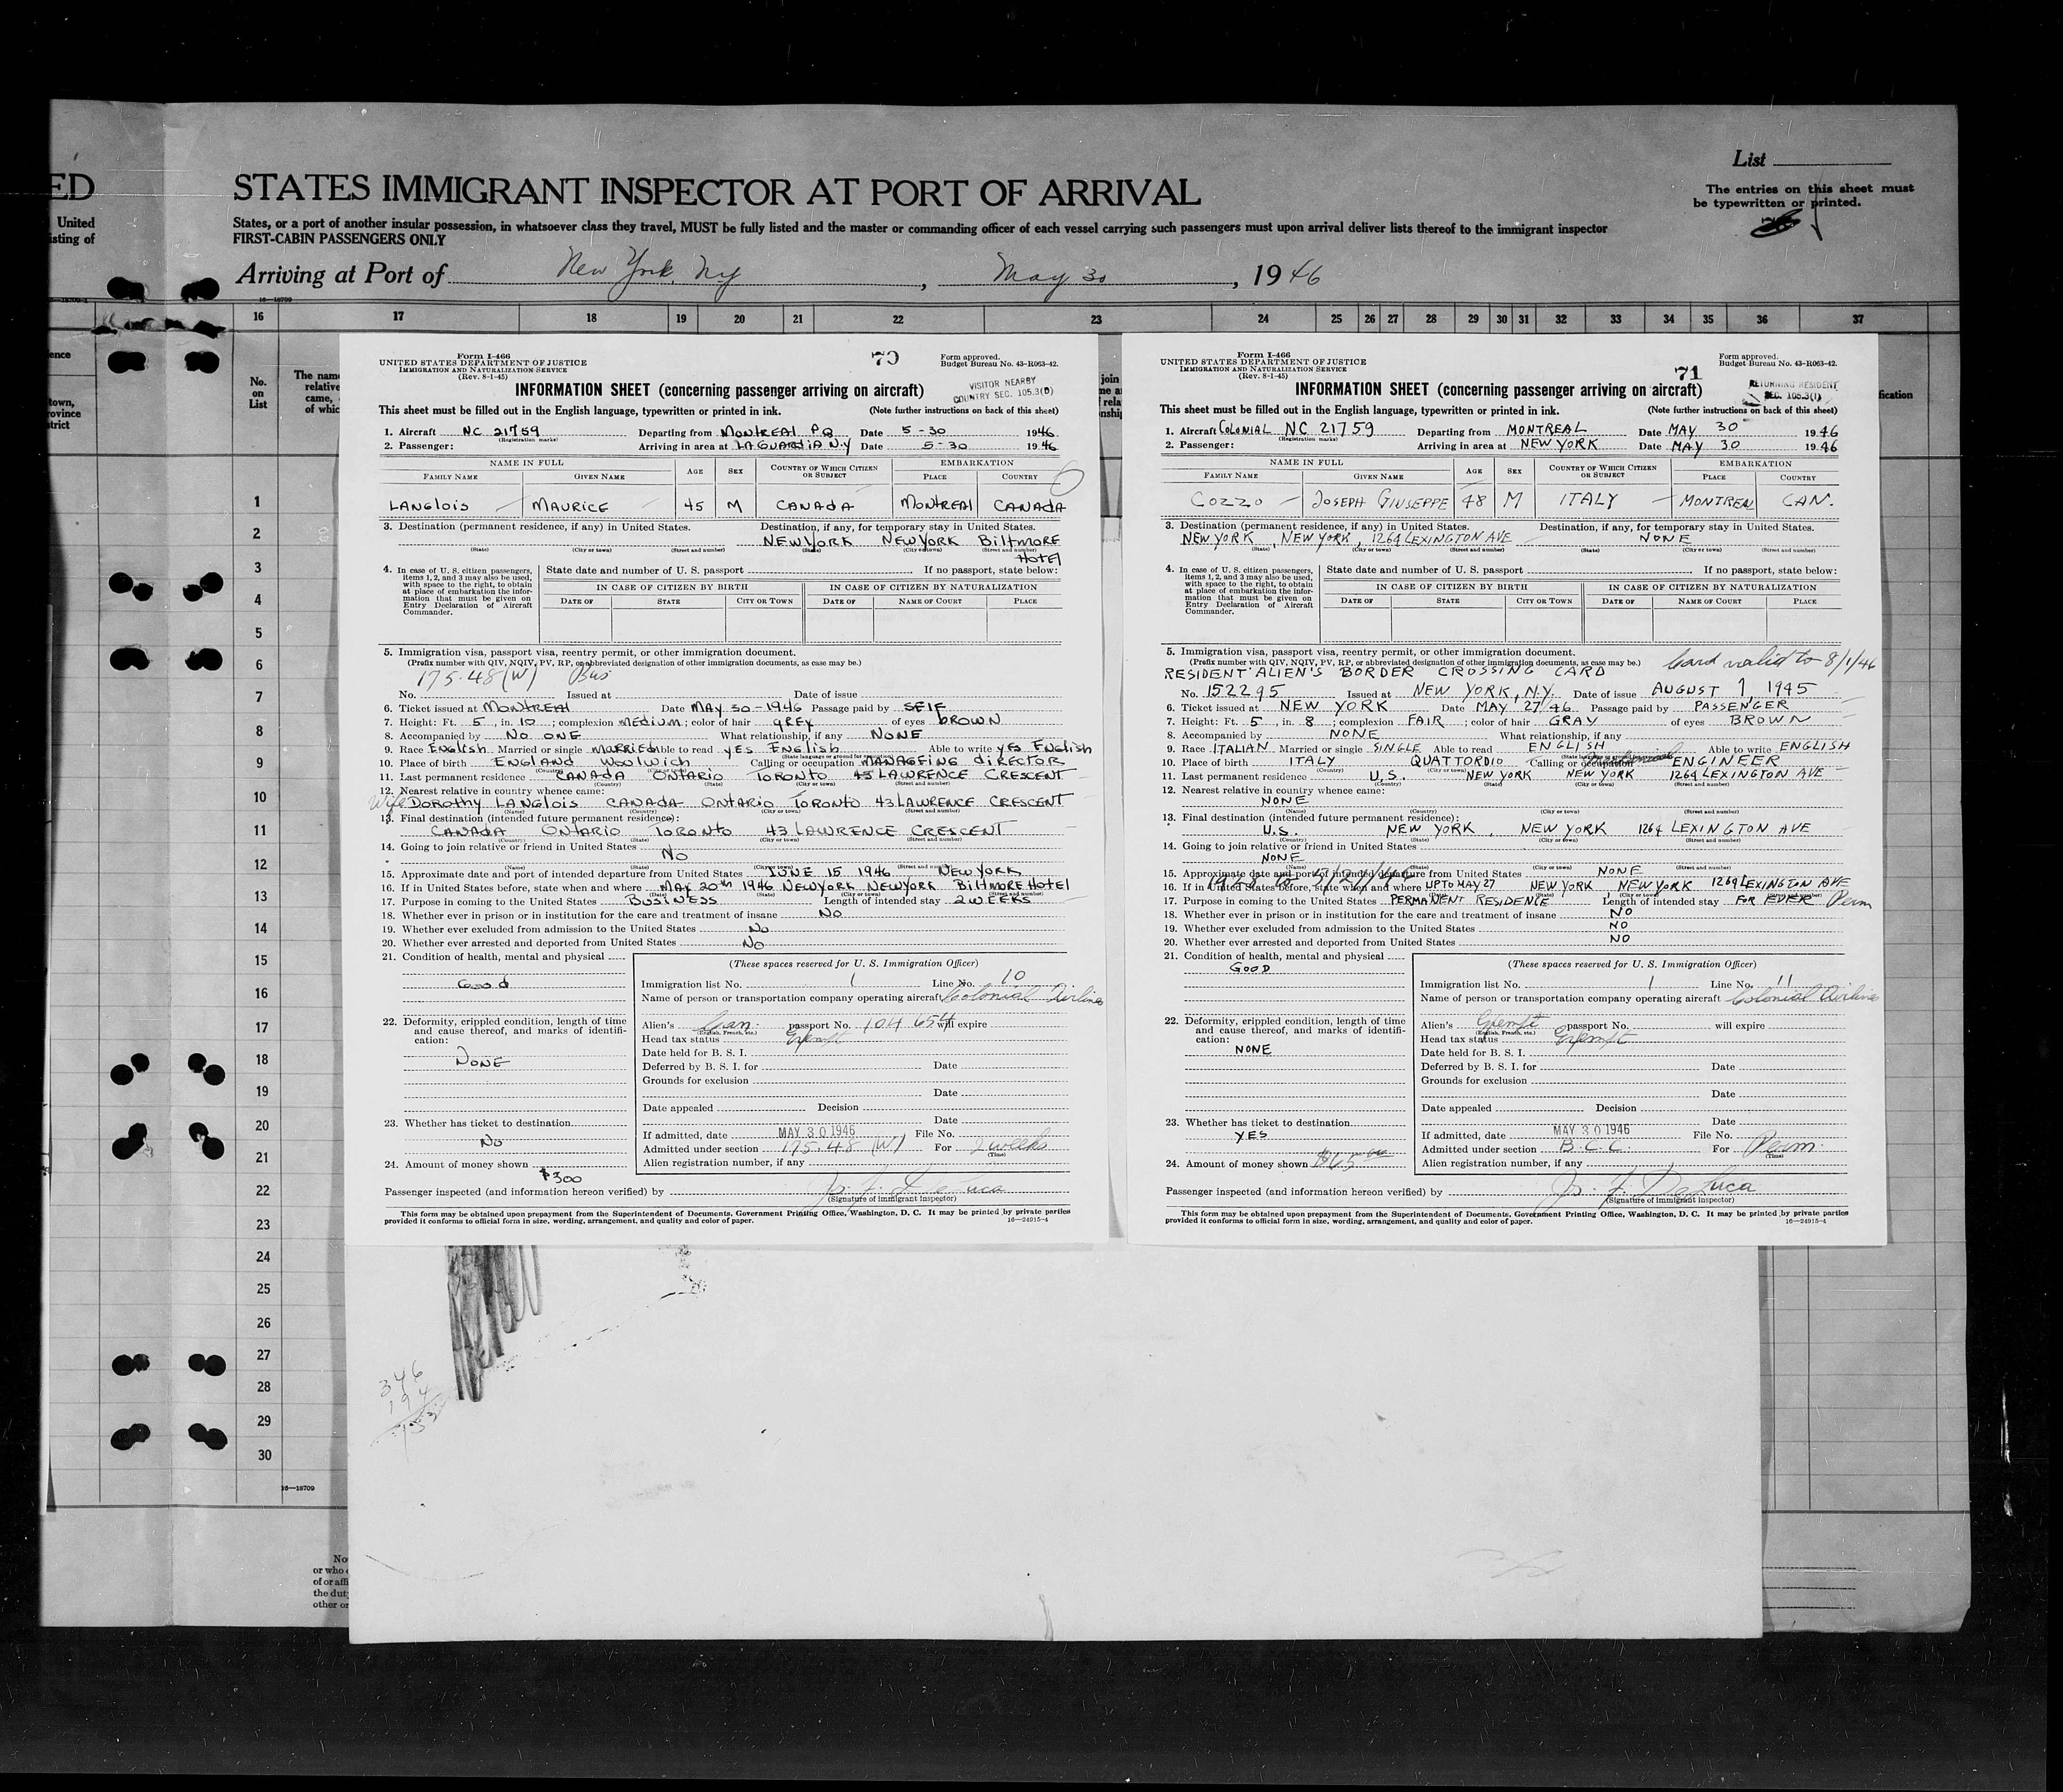 ED
United
isting of
List
STATES IMMIGRANT INSPECTOR AT PORT OF ARRIVAL
The entries on this sheet must
be typewritten or printed.
States, or a port of another insular possession, in whatsoever class they travel, MUST be fully listed and the master or commanding officer of each vessel carrying such passengers must upon arrival deliver lists thereof to the immigrant inspector
FIRST-CABIN PASSENGERS ONLY
Arriving at Port of New York, NY, May 30, 1946
16—18709
16 17 18 19 20 21 22 23 24 25 26 27 28 29 30 31 32 33 34 35 36 37
No.
on
List
1
2
3
4
5
6
7
8
9
10
11
12
13
14
15
16
17
18
19
20
21
22
23
24
25
26
27
28
29
30
16—18709
Form I-466
UNITED STATES DEPARTMENT OF JUSTICE
IMMIGRATION AND NATURALIZATION SERVICE
(Rev. 8-1-45)
70
Form approved.
Budget Bureau No. 43-R063-42.
INFORMATION SHEET (concerning passenger arriving on aircraft)
VISITOR NEARBY
COUNTRY SEC. 105.3(D)
This sheet must be filled out in the English language, typewritten or printed in ink. (Note further instructions on back of this sheet)
1. Aircraft NC 21759 Departing from MONTREAL PQ Date 5-30 1946
(Registration marks)
2. Passenger: Arriving in area at LAGUARDIA N.Y Date 5-30 1946
NAME IN FULL AGE SEX COUNTRY OF WHICH CITIZEN OR SUBJECT EMBARKATION
FAMILY NAME GIVEN NAME PLACE COUNTRY
LANGLOIS MAURICE 45 M CANADA MONTREAL CANADA
3. Destination (permanent residence, if any) in United States. Destination, if any, for temporary stay in United States.
NEW YORK NEW YORK BILTMORE
(State) (City or town) (Street and number) (State) (City or town) (Street and number)
HOTEL
4. In case of U. S. citizen passengers, items 1, 2, and 3 may also be used, with space to the right, to obtain at place of embarkation the information that must be given on Entry Declaration of Aircraft Commander.
State date and number of U. S. passport If no passport, state below:
IN CASE OF CITIZEN BY BIRTH IN CASE OF CITIZEN BY NATURALIZATION
DATE OF STATE CITY OR TOWN DATE OF NAME OF COURT PLACE
5. Immigration visa, passport visa, reentry permit, or other immigration document.
(Prefix number with QIV, NQIV, PV, RP, or abbreviated designation of other immigration documents, as case may be.)
175.48(W) Bus
No. Issued at Date of issue
6. Ticket issued at MONTREAL Date MAY 30-1946 Passage paid by SELF
7. Height: Ft. 5, in. 10; complexion MEDIUM; color of hair GREY of eyes BROWN
8. Accompanied by NO ONE What relationship, if any NONE
9. Race ENGLISH Married or single MARRIED Able to read YES ENGLISH Able to write YES ENGLISH
10. Place of birth ENGLAND WOOLWICH Calling or occupation MANAGEING DIRECTOR
11. Last permanent residence CANADA ONTARIO TORONTO 45 LAWRENCE CRESCENT
(Country) (State) (City or town) (Street and number)
12. Nearest relative in country whence came:
Wife DOROTHY LANGLOIS CANADA ONTARIO TORONTO 43 LAWRENCE CRESCENT
(Name) (Country) (City or town) (Street and number)
13. Final destination (intended future permanent residence):
CANADA ONTARIO TORONTO 43 LAWRENCE CRESCENT
(Country) (State) (City or town) (Street and number)
14. Going to join relative or friend in United States
NO
(Name) (State) (City or town) (Street and number)
15. Approximate date and port of intended departure from United States JUNE 15 1946 NEW YORK
16. If in United States before, state when and where MAY 20th 1946 NEW YORK NEW YORK BILTMORE HOTEL
17. Purpose in coming to the United States BUSINESS Length of intended stay 2 WEEKS
18. Whether ever in prison or in institution for the care and treatment of insane NO
19. Whether ever excluded from admission to the United States NO
20. Whether ever arrested and deported from United States NO
21. Condition of health, mental and physical
GOOD
22. Deformity, crippled condition, length of time and cause thereof, and marks of identification:
NONE
23. Whether has ticket to destination
NO
24. Amount of money shown $300
(These spaces reserved for U. S. Immigration Officer)
Immigration list No. 1 Line No. 10
Name of person or transportation company operating aircraft Colonial Airlines
Alien's Can. passport No. 104 654 will expire
(English, French, etc.)
Head tax status Exempt
Date held for B. S. I.
Deferred by B. S. I. for Date
Grounds for exclusion
Date
Date appealed Decision
Date
If admitted, date MAY 30 1946 File No.
Admitted under section 175.48 (W) For 2 weeks
(Time)
Alien registration number, if any
Passenger inspected (and information hereon verified) by Js. F. DeLuca
(Signature of immigrant inspector)
This form may be obtained upon prepayment from the Superintendent of Documents, Government Printing Office, Washington, D. C. It may be printed by private parties
provided it conforms to official form in size, wording, arrangement, and quality and color of paper.
16—24915-4
Form I-466
UNITED STATES DEPARTMENT OF JUSTICE
IMMIGRATION AND NATURALIZATION SERVICE
(Rev. 8-1-45)
71
Form approved.
Budget Bureau No. 43-R063-42.
INFORMATION SHEET (concerning passenger arriving on aircraft)
RETURNING RESIDENT
SEC. 105.3(1)
This sheet must be filled out in the English language, typewritten or printed in ink. (Note further instructions on back of this sheet)
1. Aircraft COLONIAL NC 21759 Departing from MONTREAL Date MAY 30 1946
(Registration marks)
2. Passenger: Arriving in area at NEW YORK Date MAY 30 1946
NAME IN FULL AGE SEX COUNTRY OF WHICH CITIZEN OR SUBJECT EMBARKATION
FAMILY NAME GIVEN NAME PLACE COUNTRY
COZZO JOSEPH GIUSEPPE 48 M ITALY MONTREAL CAN.
3. Destination (permanent residence, if any) in United States. Destination, if any, for temporary stay in United States.
NEW YORK, NEW YORK, 1264 LEXINGTON AVE NONE
(State) (City or town) (Street and number) (State) (City or town) (Street and number)
4. In case of U. S. citizen passengers, items 1, 2, and 3 may also be used, with space to the right, to obtain at place of embarkation the information that must be given on Entry Declaration of Aircraft Commander.
State date and number of U. S. passport If no passport, state below:
IN CASE OF CITIZEN BY BIRTH IN CASE OF CITIZEN BY NATURALIZATION
DATE OF STATE CITY OR TOWN DATE OF NAME OF COURT PLACE
5. Immigration visa, passport visa, reentry permit, or other immigration document.
(Prefix number with QIV, NQIV, PV, RP, or abbreviated designation of other immigration documents, as case may be.) Card valid to 8/1/46
RESIDENT ALIEN'S BORDER CROSSING CARD
No. 152295 Issued at NEW YORK, N.Y. Date of issue AUGUST 1, 1945
6. Ticket issued at NEW YORK Date MAY 27 46 Passage paid by PASSENGER
7. Height: Ft. 5, in. 8; complexion FAIR; color of hair GRAY of eyes BROWN
8. Accompanied by NONE What relationship, if any
9. Race ITALIAN Married or single SINGLE Able to read ENGLISH Able to write ENGLISH
10. Place of birth ITALY QUATTORDIO Calling or occupation ENGINEER
11. Last permanent residence U.S. NEW YORK NEW YORK 1264 LEXINGTON AVE
12. Nearest relative in country whence came:
NONE
(Name) (Country) (City or town) (Street and number)
13. Final destination (intended future permanent residence):
U.S. NEW YORK, NEW YORK 1264 LEXINGTON AVE
(Country) (State) (City or town) (Street and number)
14. Going to join relative or friend in United States
NONE
(Name) (State) (City or town) (Street and number)
15. Approximate date and port of intended departure from United States NONE
16. If in United States before, state when and where UP TO MAY 27 NEW YORK, NEW YORK 1264 LEXINGTON AVE
17. Purpose in coming to the United States PERMANENT RESIDENCE Length of intended stay FOR EVER Perm
18. Whether ever in prison or in institution for the care and treatment of insane NO
19. Whether ever excluded from admission to the United States NO
20. Whether ever arrested and deported from United States NO
21. Condition of health, mental and physical
GOOD
22. Deformity, crippled condition, length of time and cause thereof, and marks of identification:
NONE
23. Whether has ticket to destination
YES
24. Amount of money shown $65.00
(These spaces reserved for U. S. Immigration Officer)
Immigration list No. 1 Line No. 11
Name of person or transportation company operating aircraft Colonial Airlines
Alien's Exempt passport No. will expire
(English, French, etc.)
Head tax status Exempt
Date held for B. S. I.
Deferred by B. S. I. for Date
Grounds for exclusion
Date
Date appealed Decision
Date
If admitted, date MAY 30 1946 File No.
Admitted under section B.C.C. For Perm.
(Time)
Alien registration number, if any
Passenger inspected (and information hereon verified) by Js. F. DeLuca
(Signature of immigrant inspector)
This form may be obtained upon prepayment from the Superintendent of Documents, Government Printing Office, Washington, D. C. It may be printed by private parties
provided it conforms to official form in size, wording, arrangement, and quality and color of paper.
16—24915-4
346
194